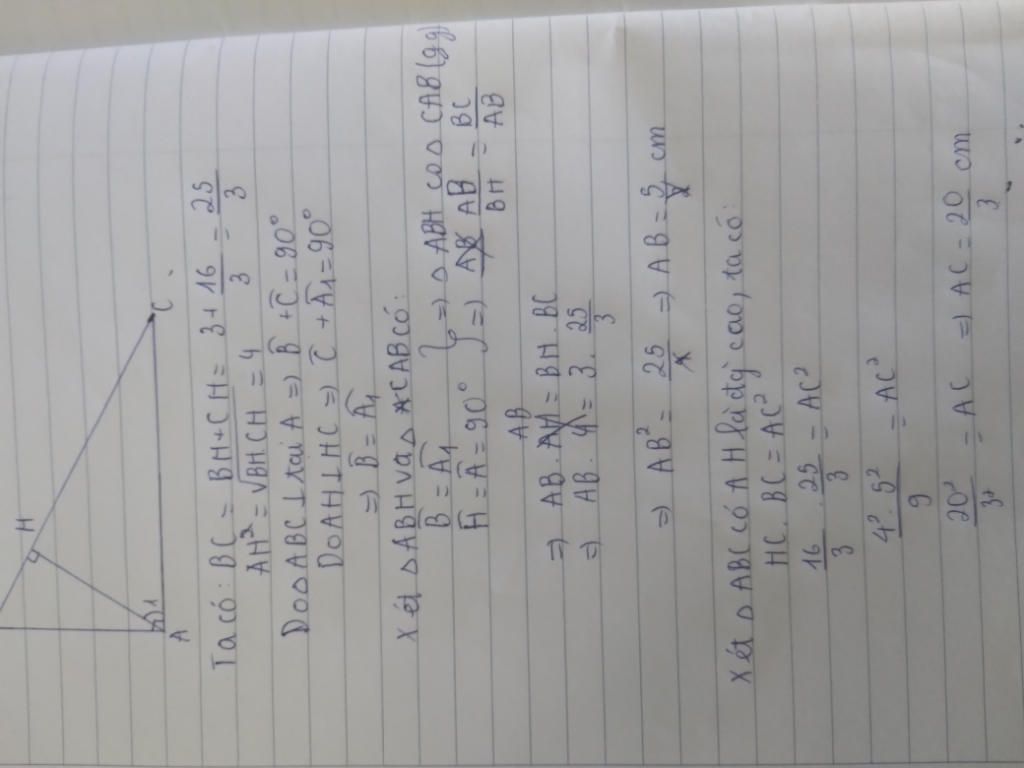 H
A
1
C
Ta có: BC = BH + CH = 3 + 16/3 = 25/3
AH² = √BH.CH = 4
Do △ABC ⊥ tại A => B̂ + Ĉ = 90°
Do AH ⊥ HC => Ĉ + Â₁ = 90°
=> B̂ = Â₁
Xét △ABH và △CAB có:
B̂ = Â₁ } => △ABH ∽ △CAB (gg)
Ĥ = Â = 90° } => AB/BH = BC/AB
=> AB.AB = BH.BC
=> AB. = 3 . 25/3
=> AB² = 25 => AB = 5 cm
Xét △ABC có AH là đg cao, ta có:
HC.BC = AC²
16/3 . 25/3 = AC²
4².5²/9 = AC²
20²/3² = AC => AC = 20/3 cm